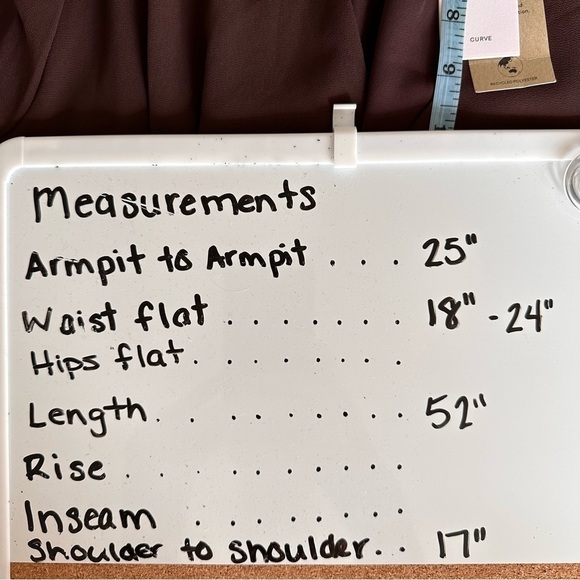 8
9
CURVE
RECYCLED POLYESTER
Measurements
Armpit to Armpit . . . 25"
Waist flat . . . . . . . 18" - 24"
Hips flat . . . . . . . .
Length . . . . . . . . . 52"
Rise . . . . . . . . . .
Inseam . . . . . . .
Shoulder to shoulder . . 17"